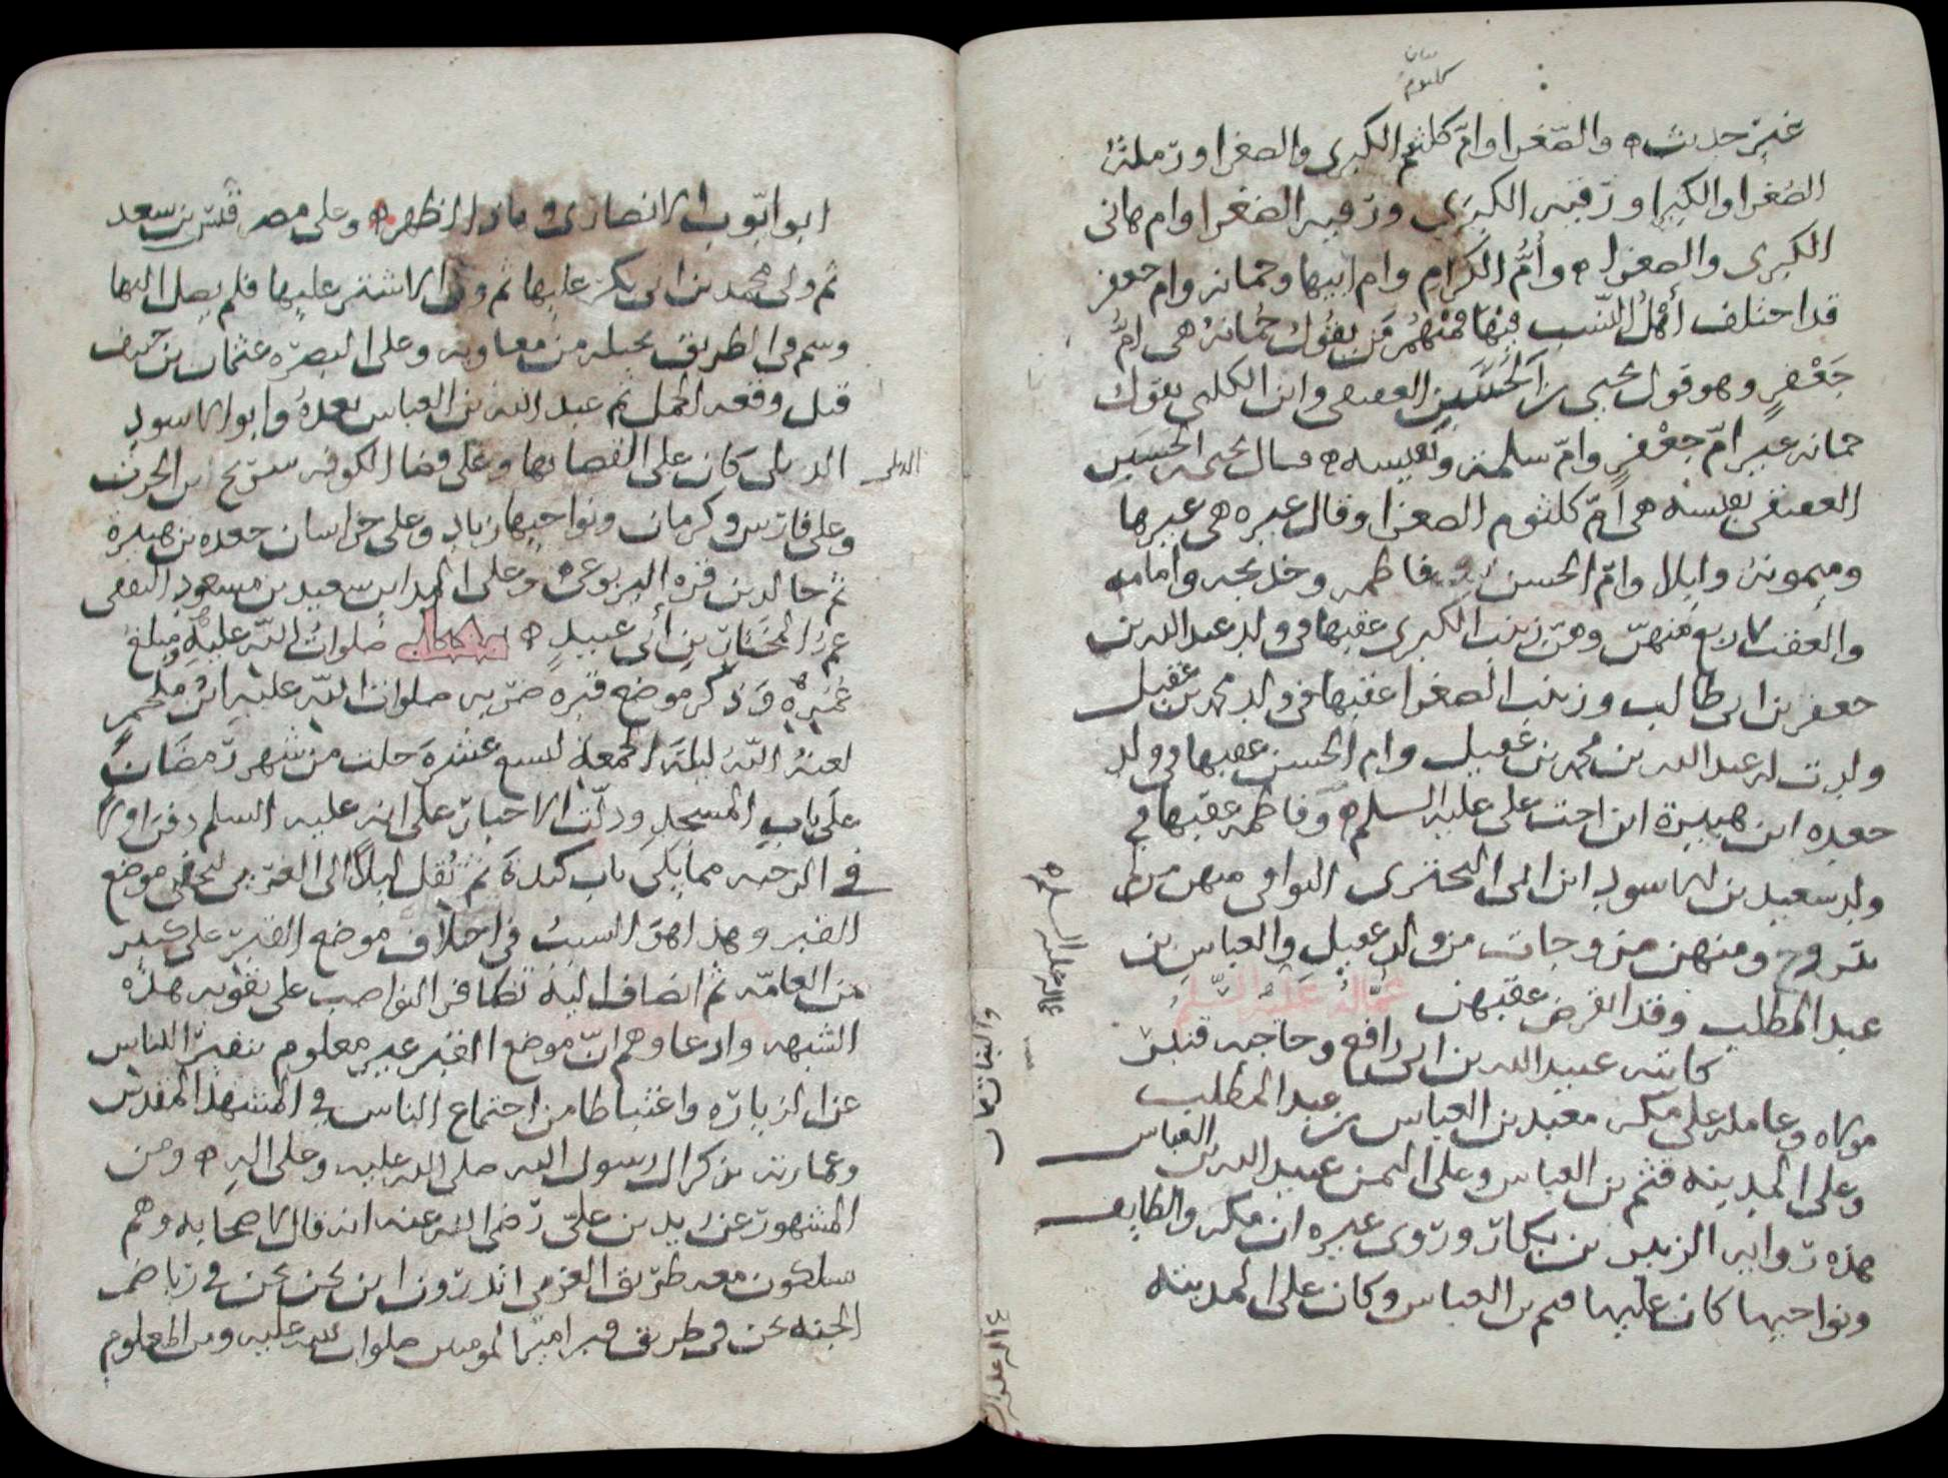 كلثوم
غير حديث والصغرا وامّ كلثم الكبرى والصغرا ورملة
الصغرا والكبرا ورقيه الكبرى ورقيه الصغرا وام هانى
الكبرى والصغرا وأمّ الكرام وام ابيها وجمانه وام جعفر
قد اختلف أهل النسب فيها فمنهم من يقول جُمانة هى امّ
جَعْفرٍ وهو قول يحيى بن الحسين العقيقى وابن الكلبى يقول
جمانه غير امّ جعفرٍ وامّ سلمة ونفيسه قال يحيى بن الحسين
العقيقى نفيسه هى امّ كلثوم الصغرا وقال غيره هى غيرها
وميمونة وامّ الحسن وفاطمه وخديجه وامامه
والعقب لاربع منهنّ وهنّ زينب الكبرى عقبها فى ولد عبد الله بن
جعفر بن ابى طالب وزينب الصغرا عقبها فى ولد محمد بن عقيل
ولدت له عبد الله بن محمد بن عقيل وام الحسن عقبها فى ولد
جعده ابن هبيرة ابن اخت على عليه السلم وفاطمه عقبها فى
ولد سعيد بن الاسود ابن ابى البحترى البواقى منهن من لم
تتزوج ومنهن مزوجات من ولد عقيل والعباس بن
عبد المطلب وقد انقرض عقبهن عمّاله عليه السّلم
كاتبه عبيد الله بن ابى رافع وحاجبه قنبر
مولاه وعامله على مكه معبد بن العباس بن عبد المطلب
وعلى المدينه قثم بن العباس وعلى اليمن عبيد الله بن العباس
هذه روايه الزبير بن بكار وروى غيره ان مكه والطايف
ونواحيها كان عليها قثم بن العباس وكان على المدينه
عماله عليه السلم
ابو ايّوب الانصارى وعلى مصر قيس بن سعد
ثم ولى محمد بن ابى بكر عليها ثم ولى الاشتر عليها فلم يصل اليها
وسم فى الطريق بحيله من معاويه وعلى البصره عثمان بن حنيف
قبل وقعه الجمل ثم عبد الله بن العباس بعده وابو الاسود
الديلى كان على القضا بها وعلى قضا الكوفه شريح ابن الحرث
الدولى
وعلى فارس وكرمان ونواحيها زياد وعلى خراسان جعده بن هبيرة
ثم خالد بن قره اليربوعى وعلى المداين سعيد بن مسعود الثقفى
عمّ المختار بن أبى عبيدٍ مقتله صلوات الله عليه ومبلغ
عُمره وذكر موضع قبره ضربه صلوات الله عليه ابن ملجم
لعنهُ الله ليلة الجمعة لتسع عشرة خلت من شهر رمضان
على باب المسجد ودلّت الاخبار على انه عليه السلم دفن اولا
فى الرحبه مما يلى باب كندة ثم نُقل ليلًا الى الغرى ليخفى موضع
القبر وهذا هو السبب فى اختلاف موضع القبر على كثير
من العامّه ثم انضاف اليه تظافر النواصب على تقويه هذه
الشبهه وادعاوهم انّ موضع القبر غير معلوم تنفيرًا للناس
عن الزياره واغتباطا من اجتماع الناس فى المشهد المقدس
وعمارته بذكر ال رسول الله صلى الله عليه وعلى اله ومن
المشهور عن زيد بن علىّ رضى الله عنه انه قال لاصحابه وهم
يسلكون معه طريق الغرى اتدرون اين نحن نحن فى رياض
الجنه نحن فى طريق قبر امير المومنين صلوات الله عليه ومن المعلوم